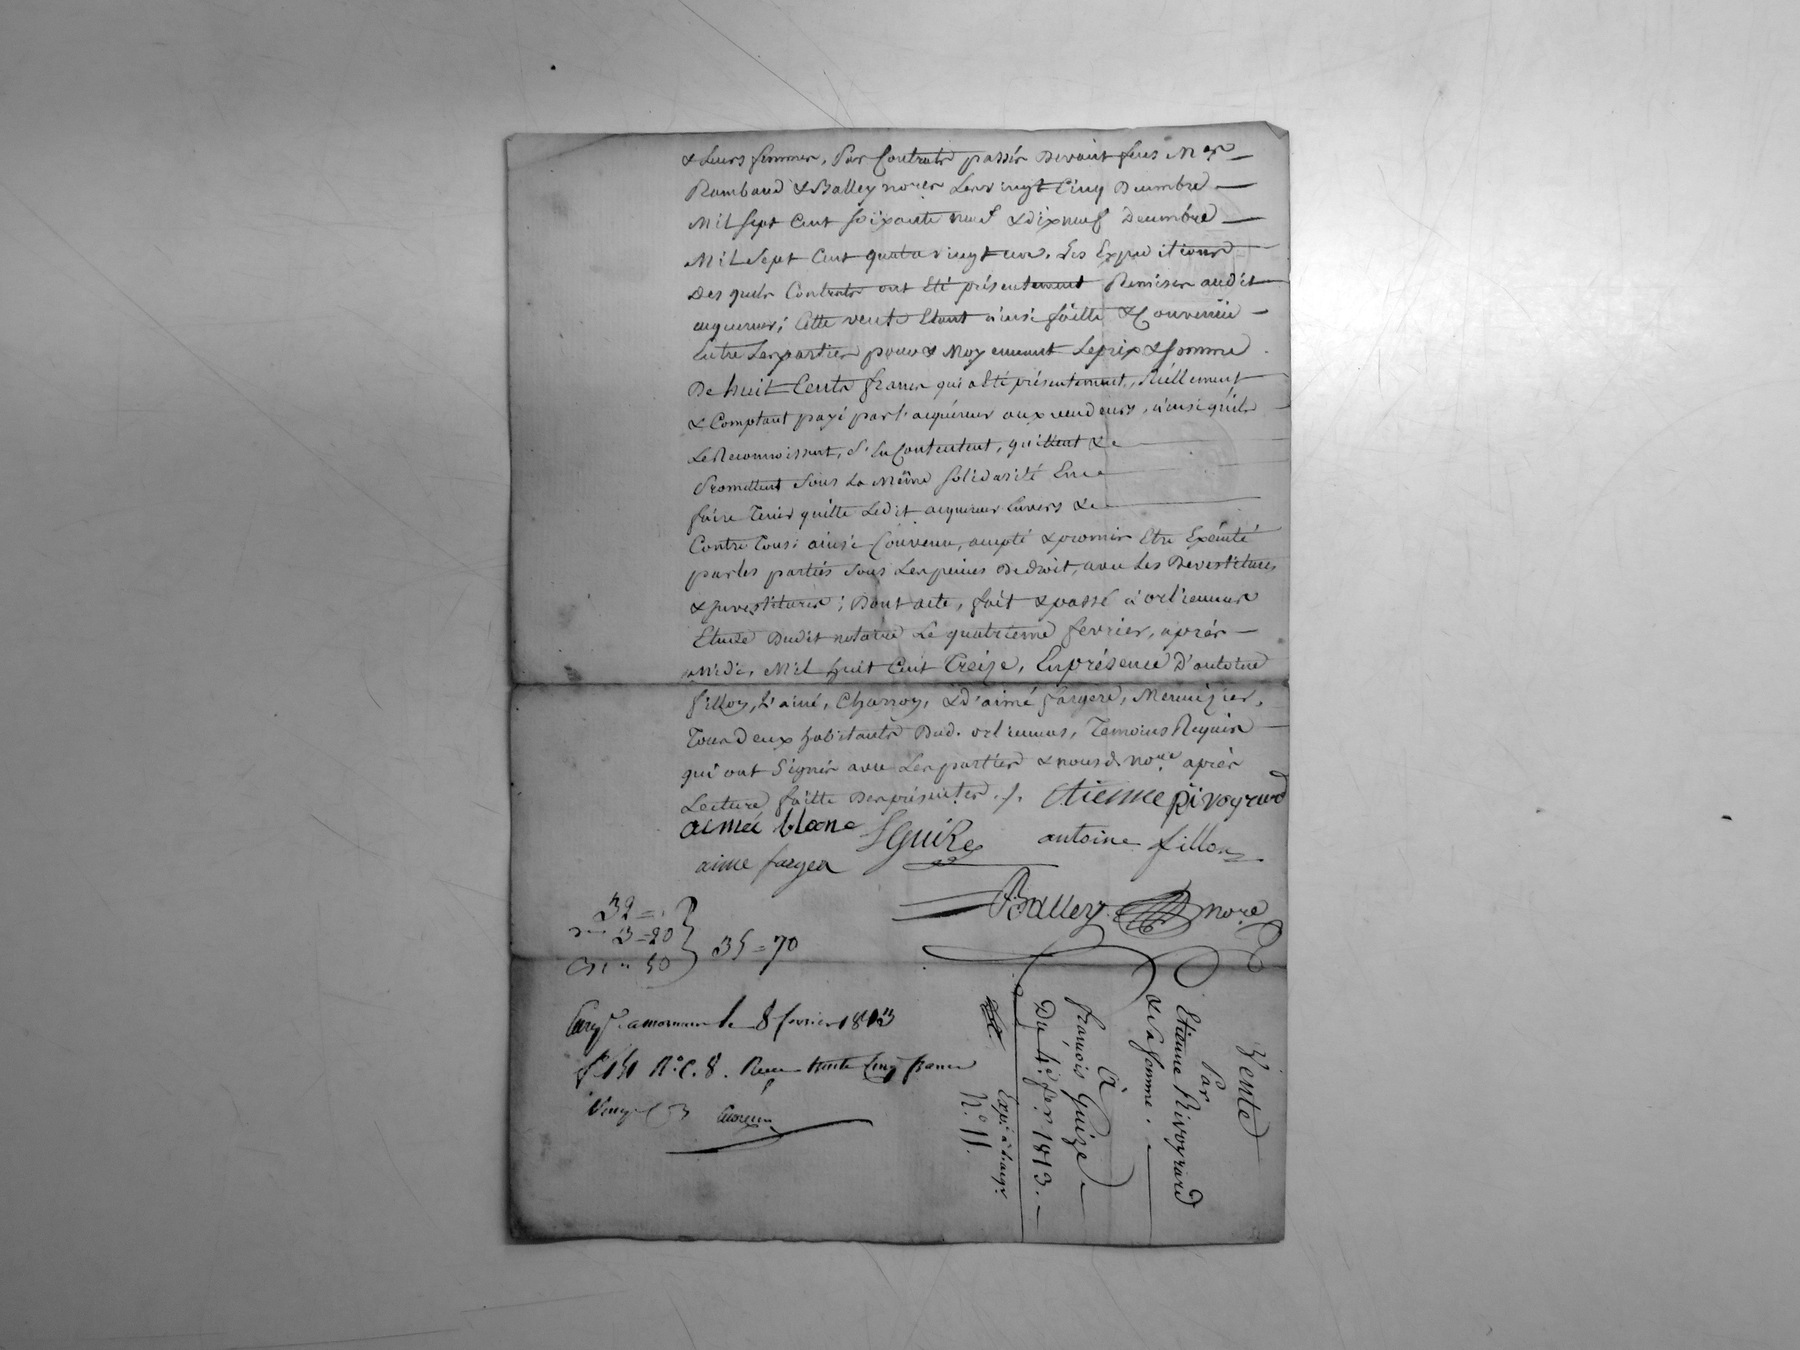 & Leurs femmes, Par Contrats passés devant feus Mes
Rambaud & Balley nores Les vingt Cinq Decembre
Mil sept Cent soixante neuf & dix neuf Decembre
Mil Sept Cent quatre vingt un. Les Expeditions
Des quels Contrats ont Eté présentement Remises audit
acquereur; Cette vente Etant ainsi faitte & Convenüe
Entre Les parties pour & Moyennant Le prix & somme
De huit Cents francs qui a Eté présentement, Réellement
& Comptant payé par l'acquéreur aux vendeurs, ainsi qu'ils
Le Reconnoissent, S'en Contentent, quittent &
Promettent Sous La Même solidarité En
faire Tenir quitte Ledit acquereur Envers &
Contre Tous: ainsi Convenu, accepté & promis Etre Exécuté
par les parties Sous Les peines De droit, avec Les Devestitures
& Investitures; Dont acte, fait & passé à orliennas
Etude Dudit notaire Le quatrieme fevrier, après
Midi, Mil huit Cent Treize, En présence D'antoine
fillon, L'ainé, Charron, & d'aimé fargere, Menuizier,
Tous Deux habitants Dud. orliennas, Temoins Requis
qui ont Signés avec Les parties & nousd. nore. après
Lecture faitte Des présentes ./. Etienne Rivoyrard
aimée blanc fGuize antoine fillon
aime farger
Balley nore
32 =
3 = 20
50
35 = 70
Enreg. a mornant le 8 fevrier 1813
fo 151 Ro. C. 8. Recu trente Cinq francs
Vente
Par
Etienne Rivoyrard
& Sa femme.
à
françois Guize
Du 4e. fer. 1813.
No. 11.